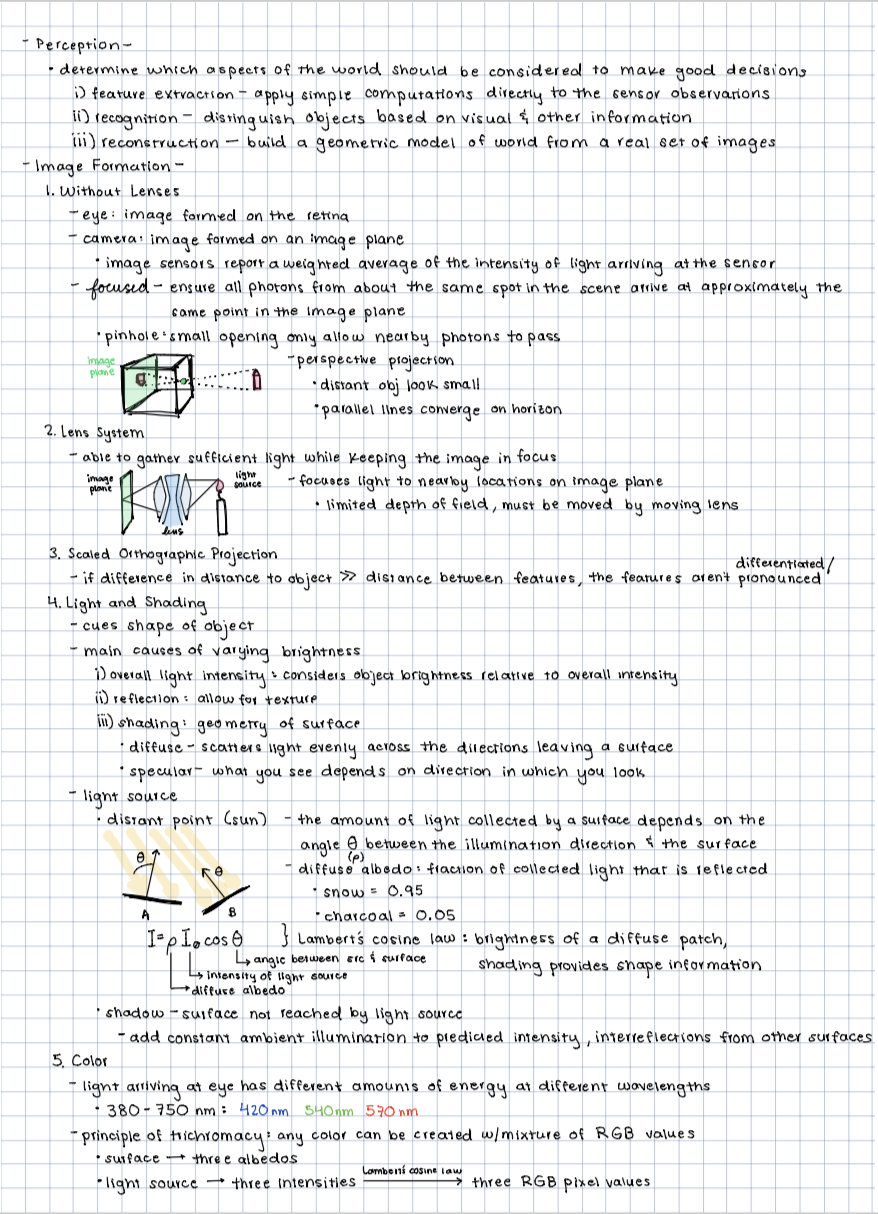 - Perception -
• determine which aspects of the world should be considered to make good decisions
i) feature extraction - apply simple computations directly to the sensor observations
ii) recognition - distinguish objects based on visual & other information
iii) reconstruction - build a geometric model of world from a real set of images
- Image Formation -
1. Without Lenses
- eye: image formed on the retina
- camera: image formed on an image plane
• image sensors report a weighted average of the intensity of light arriving at the sensor
- focused - ensure all photons from about the same spot in the scene arrive at approximately the
same point in the image plane
• pinhole: small opening only allow nearby photons to pass
image
plane
- perspective projection
• distant obj look small
• parallel lines converge on horizon
2. Lens System
- able to gather sufficient light while keeping the image in focus
image
plane
lens
light
source
- focuses light to nearby locations on image plane
• limited depth of field, must be moved by moving lens
3. Scaled Orthographic Projection
differentiated/
- if difference in distance to object >> distance between features, the features aren't pronounced
4. Light and Shading
- cues shape of object
- main causes of varying brightness
i) overall light intensity: considers object brightness relative to overall intensity
ii) reflection: allow for texture
iii) shading: geometry of surface
• diffuse - scatters light evenly across the directions leaving a surface
• specular - what you see depends on direction in which you look
- light source
• distant point (sun) - the amount of light collected by a surface depends on the
angle θ between the illumination direction & the surface
(ρ)
- diffuse albedo: fraction of collected light that is reflected
• snow = 0.95
• charcoal = 0.05
θ
θ
A
B
I = ρ I₀ cos θ } Lambert's cosine law: brightness of a diffuse patch,
shading provides shape information
angle between src & surface
intensity of light source
diffuse albedo
• shadow - surface not reached by light source
- add constant ambient illumination to predicted intensity, interreflections from other surfaces
5. Color
- light arriving at eye has different amounts of energy at different wavelengths
• 380 - 750 nm: 420nm 540nm 570nm
- principle of trichromacy: any color can be created w/mixture of RGB values
• surface → three albedos
Lambert's cosine law
• light source → three intensities → three RGB pixel values